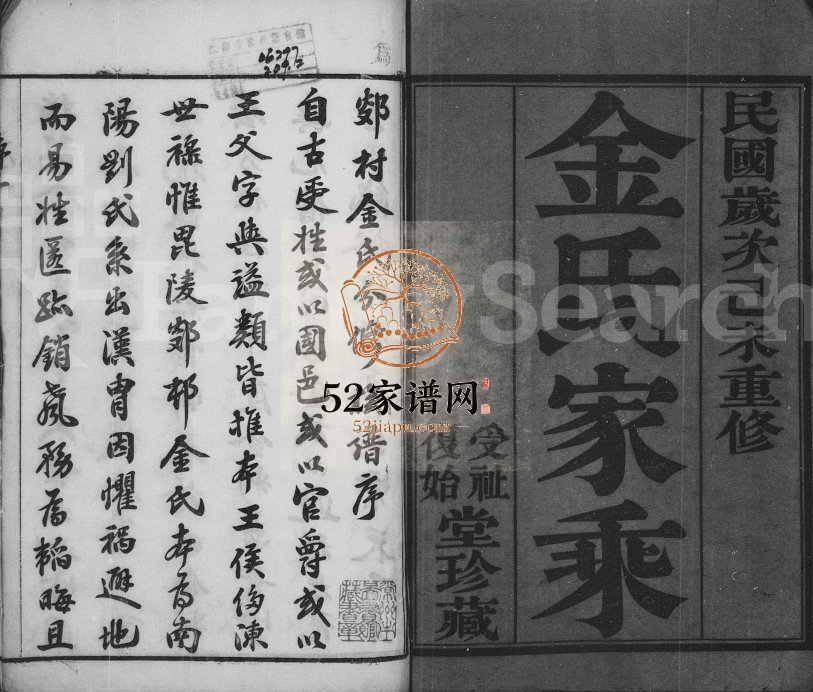 民國歲次己未重修
金氏家乘
受祉
復始
堂珍藏
鄭村金氏
譜序
自古受姓或以國邑或以官爵或以
王父字與謚類皆推本王侯侈陳
世祿惟毘陵鄭邨金氏本為南
陽劉氏系出漢胄因懼禍避地
而易姓匿跡銷聲務為韜晦且
序
06297
209.2
52家谱网
52jiapu.com
Search